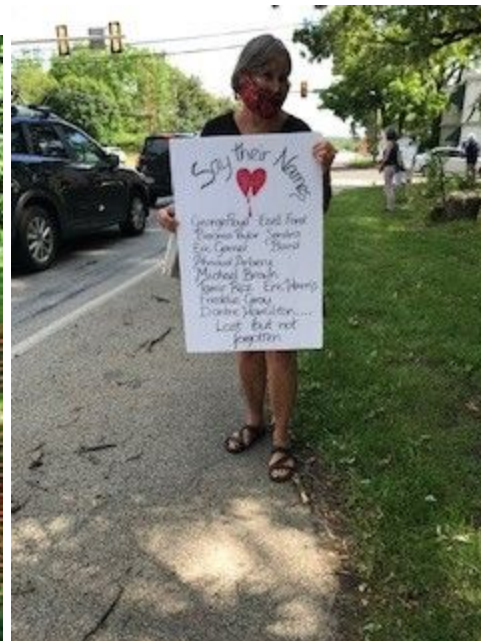 Say their Names
George Floyd Ezell Ford
Breonna Taylor Sandra
Eric Garner Bland
Ahmaud Arbery
Michael Brown
Tamir Rice Eric Harris
Freddie Gray
Dontre Hamilton....
Lost but not
forgotten